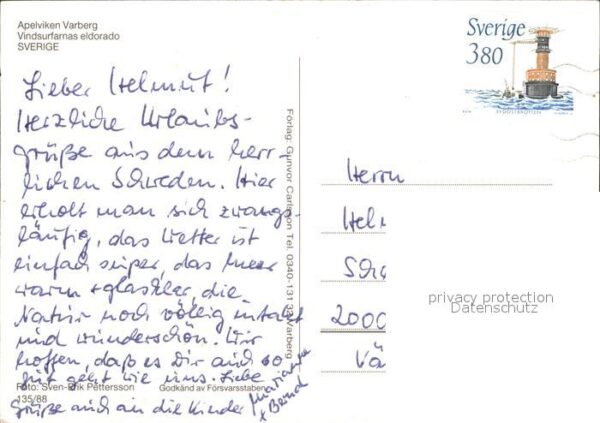 Apelviken Varberg
Vindsurfarnas eldorado
SVERIGE
Lieber Helmut!
Herzliche Urlaubs-
grüße aus dem herr-
lichen Schweden. Hier
erholt man sich zwangs-
läufig, das Wetter ist
einfach super, das Meer
warm + glasklar, die
Natur noch völlig intakt
und wunderschön. Wir
hoffen, daß es Dir auch so
gut geht wie uns. Liebe
Grüße auch an die Kinder
Marianne
+ Bernd
Foto: Sven-Erik Pettersson
Godkänd av Försvarsstaben
135/88
Förlag: Gunvor Carlsson Tel. 0340-131 33 Varberg
Sverige
380
Herrn
Hel
Sch
2000
privacy protection
Datenschutz